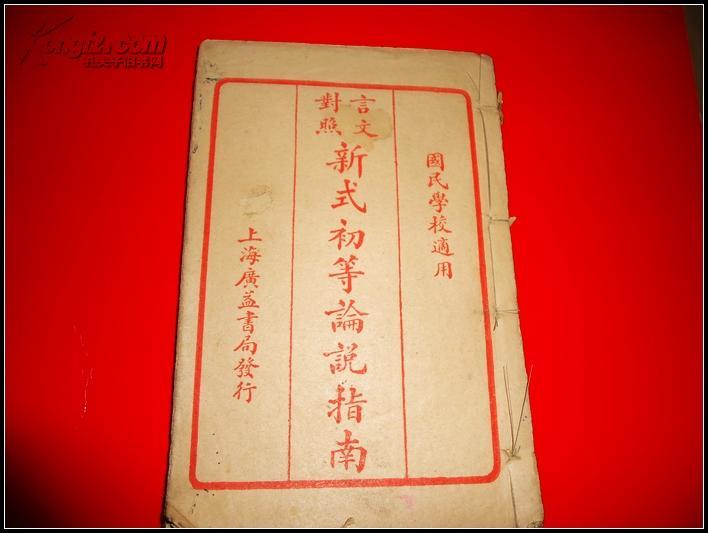 國民學校適用
言文
對照
新式初等論說指南
上海廣益書局發行
Kongfz.com
孔夫子旧书网